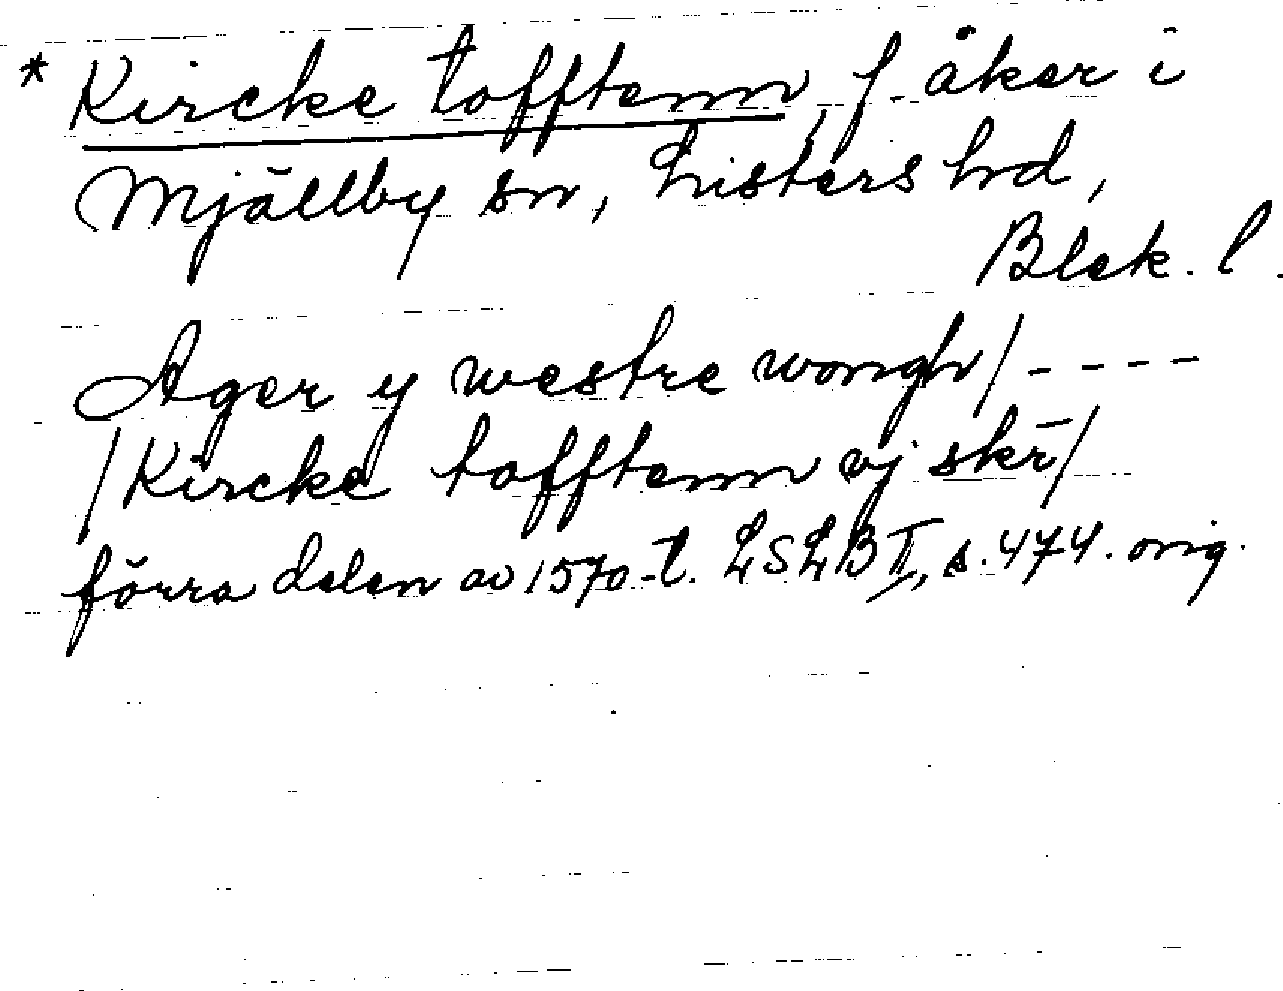 * Kircke tofftenn, f. åker i
Mjällby sn, Listers hd,
Blek. l.
Ager y westre wongh/ - - - -
/Kircke tofftenn vj skr̄/
förra delen av 1570-t. LSLB I, s. 474. orig.